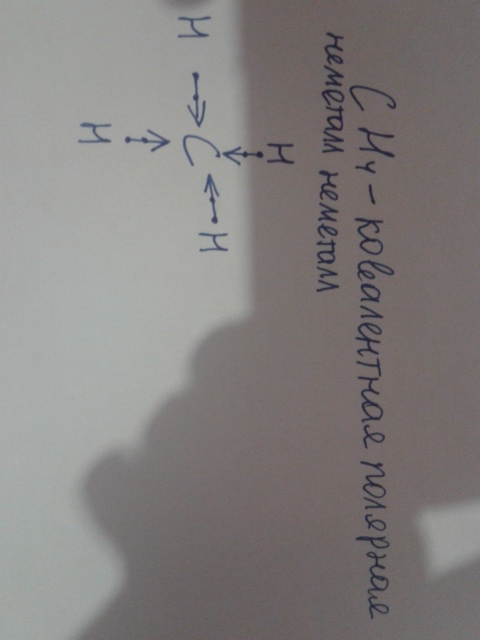 CH₄ - ковалентная полярная
неметалл неметалл
H
H → C ← H
H